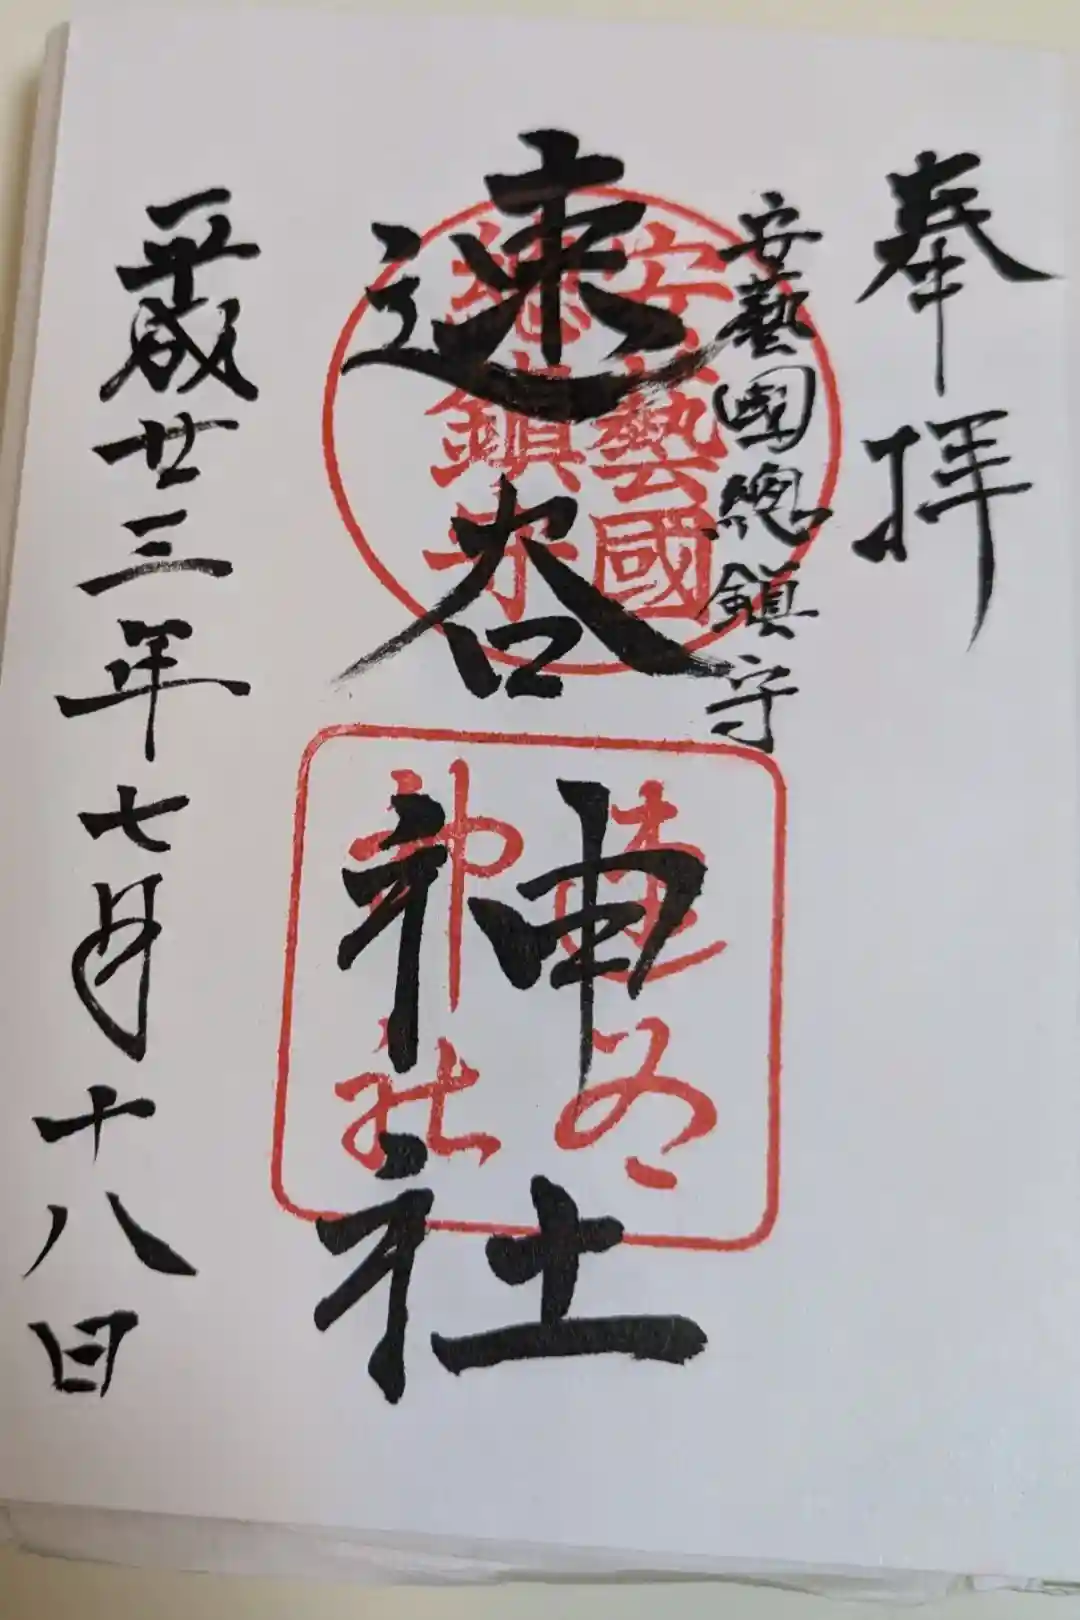 奉拝
安藝國總鎮守
速谷神社
安藝國
總鎮守
速谷
神社
平成廿三年七月十八日